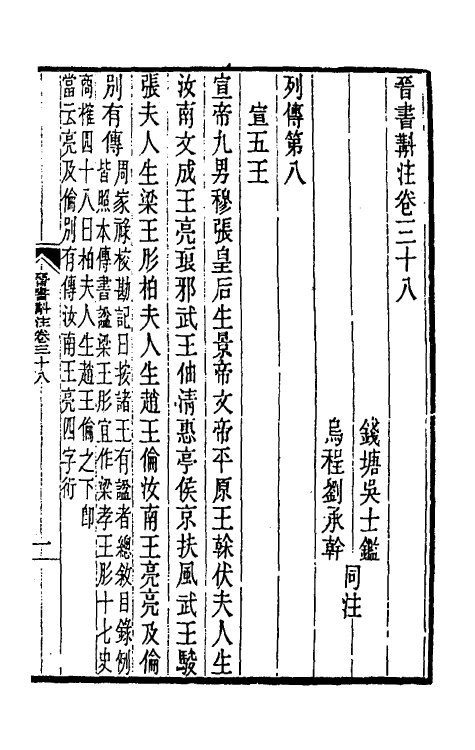 晉書斠注卷三十八
錢塘吳士鑑
烏程劉承幹
同注
列傳第八
宣五王
宣帝九男穆張皇后生景帝文帝平原王榦伏夫人生
汝南文成王亮琅邪武王伷清惠亭侯京扶風武王駿
張夫人生梁王肜柏夫人生趙王倫汝南王亮亮及倫
別有傳
周家祿校勘記曰按諸王有諡者總敘目錄例
皆照本傳書諡梁王肜宜作梁孝王肜十七史
商榷四十八曰柏夫人生趙王倫之下卽
當云亮及倫別有傳汝南王亮四字衍
晉書斠注卷三十八
一